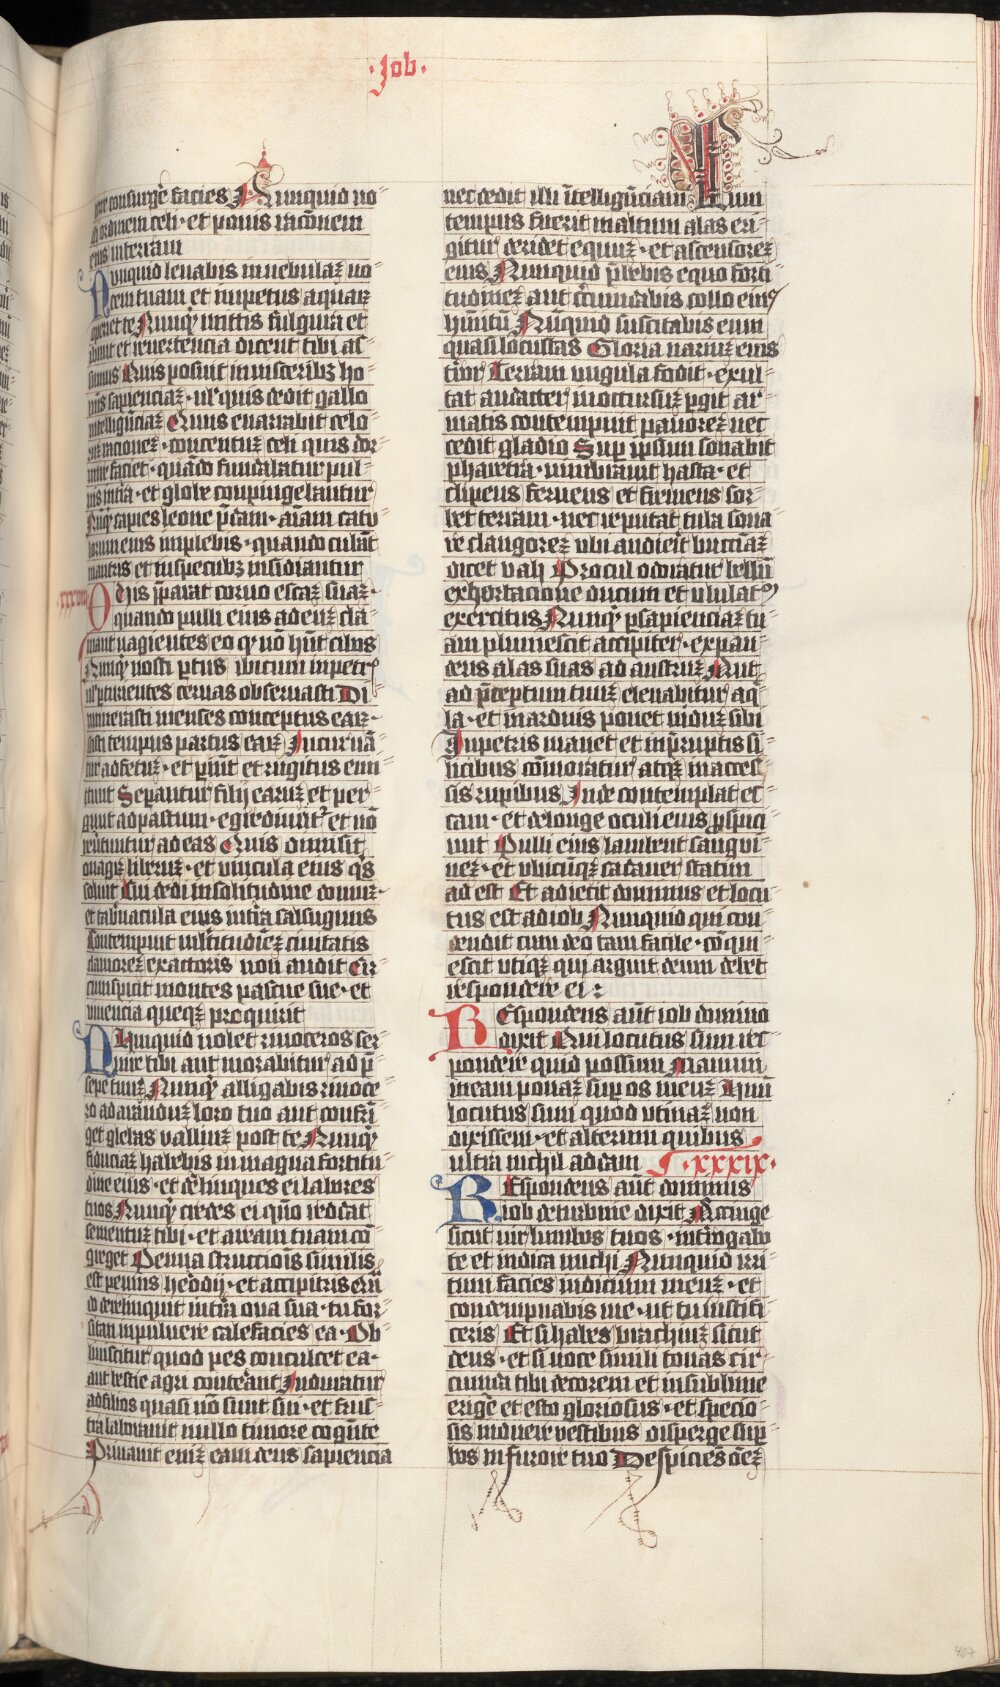 ·Job·
rre consurgẽ facies Nunquid no
sti ordinem celi· et pones racõnem
eius interram
Nunquid levabis in nebulaʒ vo
cem tuam et impetus aquaꝝ
operiet te Nunqͥ mittis fulgura et
ibunt et revertencia dicent tibi as
sumus Quis posuit in visceribʒ ho
mĩs sapienciaʒ· vlʼ quis dedit gallo
intelligẽciaʒ Quis enarrabit celo
rũ racioneʒ· et concentuʒ celi quis dor
mire faciet· quãdo fundabatur pul
vis in t̃ra· et glebe compingebantur
Nũqͥ capies leone p̃dam· aĩam catu
lorum eius implebis· quando cubãt
in antris et in specubʒ insidiantur
·xxxviii·
Quis p̃parat corvo escaʒ suaʒ·
quando pulli eius ad deuʒ cla
mant vagientes eo qͥ nõ hñt cibos
Nunqͥ nosti ꝑtus ibicum in petrͥ
vlʼ parturientes cervas observasti Di
numerasti menses conceptus eaꝝ·
scisti tempus partus eaꝝ Incurvã
tur ad fetuʒ· et ꝑiũt et rugitus emi
tunt Separantur filij earuʒ et per
gunt ad pastum· egrediunt̃ et nõ
revertuntur ad eas Quis dimisit
onagꝝ liberuʒ· et vincula eius qͥs
solvit Cui dedi in solitudine domũ·
et tabernacula eius in terra salsuginis
Contempnit multitudineʒ civitatis
clamoreʒ exactoris non audit Cir
cumspicit montes pascue sue· et
virencia queqʒ proquirit
Nunquid volet rinoceros ser
vire tibi aut morabitur ad p̃
sepe tuuʒ Nunqͥ alligabis rinoce
ro ad aranduʒ loro tuo aut confri
get glebas valliuʒ post te Nunqͥ
fiduciaʒ habebis in magna fortitu
dine eius· et derelinques ei labores
tuos Nunqͥ credes ei qm̃ reddat
sementuʒ tibi· et aream tuam cõ
greget Penna strucciois similis
est pennis herodij· et accipitris Qñ
do derelinquit in t̃ra ova sua· tu for
sitan in pulvere calefacies ea· Ob
liviscitur quod pes conculcet ea·
aut bestie agri conterant Induratur
ad filios quasi nõ sunt sui· et frus
tra laboravit nullo timore cogẽte
Privavit eniʒ eam deus sapiencia
nec dedit illi ĩtelligẽciam Cum
tempus fuerit in altum alas eri
gitur deridet equuʒ· et ascensoreʒ
eius Nunquid p̃bebis equo forti
tudineʒ aut c̃cundabis collo eius
hinnitũ Nũquid suscitabis eum
quasi locustas Gloria nariuʒ eius
terror Terram ungula fodit· exul
tat audacter in occursuʒ ꝑgit ar
matis contempnit pavoreʒ nec
cedit gladio Suꝑ ipsum sonabit
pharetra· vimbrabit hasta· et
clipeus Fervens et fremens sor
bet terram· nec reputat tuba sona
re clangoreʒ ubi audierit buccinaʒ
dicet vah Procul odoratur bellũ
exhortacione ducum et ululatꝰ
exercitus Nunqͥ ꝑ sapienciaʒ tu
am plumescit accipiter· expan
dens alas suas ad austruʒ Aut
ad p̃ceptum tuuʒ elevabitur aqͥ
la· et in arduis ponet niduʒ sibi
In petris manet et in p̃ruptis si
licibus cõmoratur atqʒ in acces
sis rupibus Inde contemplat̃ es
cam· et de longe oculi eius ꝓspici
unt Pulli eius lambent sangui
neʒ· et ubicũqʒ cadaver statim
ad est Et adiecit dominus et locu
tus est ad iob Nunquid qui con
tendit cum deo tam facile· cõqui
escit utiqʒ qui arguit deum debet
respondere ei:
Respondens aũt iob domino
dixit Qui locutus sum res
pondere quid possum Manum
meam ponaʒ suꝑ os meuʒ Unũ
locutus sum quod utinaʒ non
dixissem· et alterum quibus
ultra nichil addam ·xxxix·
Respondens aũt dominus
iob de turbine dixit Accinge
sicut vir lumbos tuos· interrogabo
te et indica michi Nunquid irri
tum facies iudicium meuʒ· et
condempnabis me· ut tu iustifi
ceris Et si habes brachiuʒ sicut
deus· et si voce simili tonas cir
cumda tibi decorem et in sublime
erigẽ et esto gloriosus· et specio
sis induere vestibus disperge suꝑ
bos in furore tuo Despiciẽs oẽʒ
407